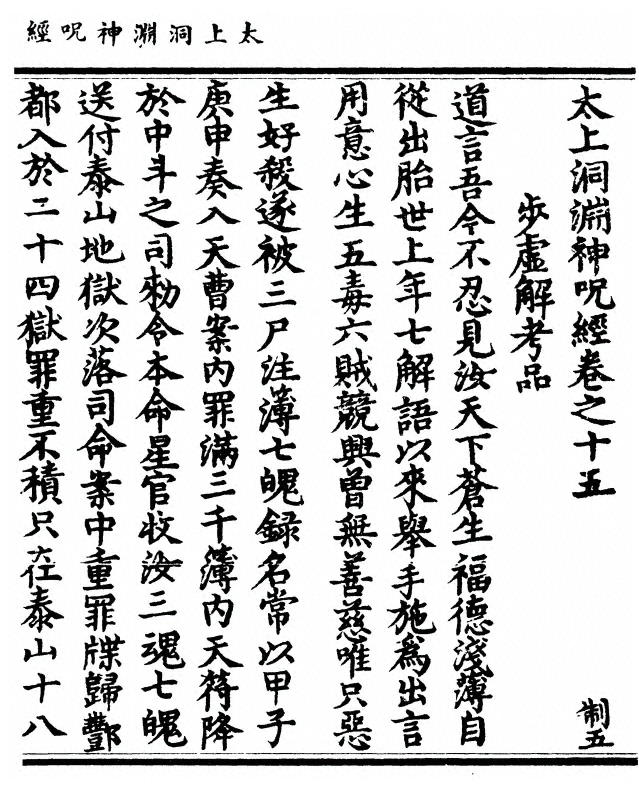 太上洞淵神呪經
太上洞淵神呪經卷之十五
制五
步虛解考品
道言吾今不忍見汝天下蒼生福德淺薄自
從出胎世上年七解語以來舉手施爲出言
用意心生五毒六賊競興曾無善慈唯只惡
生好殺遂被三尸注簿七魄録名常以甲子
庚申奏入天曹案內罪滿三千簿內天符降
於中斗之司勑令本命星官收汝三魂七魄
送付泰山地獄次落司命案中重罪牒歸酆
都入於二十四獄罪重不積只在泰山十八